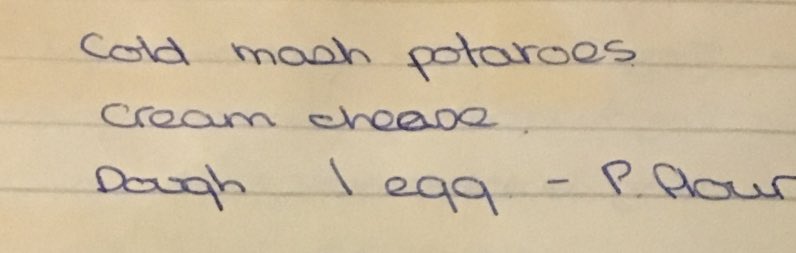 Cold mash potatoes.
Cream cheese.
Dough 1 egg - P. Flour